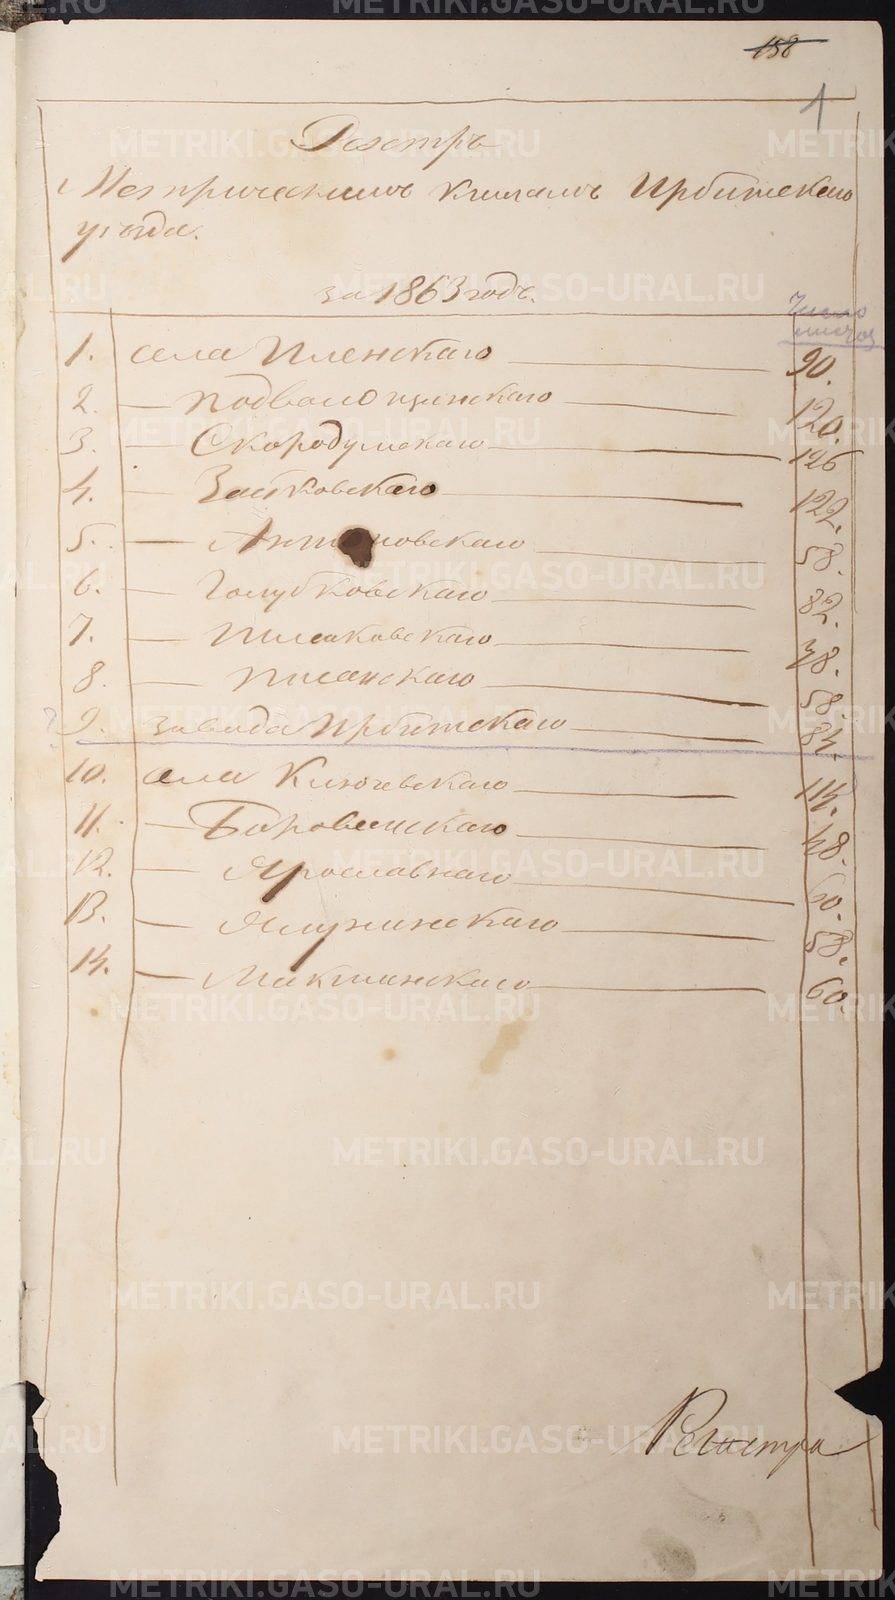 158
1
Реестръ
Метрическимъ книгамъ Ирбитскаго
уѣзда.
за 1863 годъ.
Число
листов
1. села Иленскаго 90.
2. — Подволошинскаго 120.
3. — Скородумскаго 126
4. — Зайковскаго 122.
5. — Антоновскаго 58.
6. — Голубковскаго 82.
7. — Шмаковскаго 48.
8. — Писанскаго 58.
? 9. завода Ирбитскаго 84.
10. села Ключевскаго 114.
11. — Боровскаго 48.
12. — Ярославскаго 60.
13. — Ялунинскаго 58.
14. — Мокшинскаго 60.
Регистра
METRIKI.GASO-URAL.RU